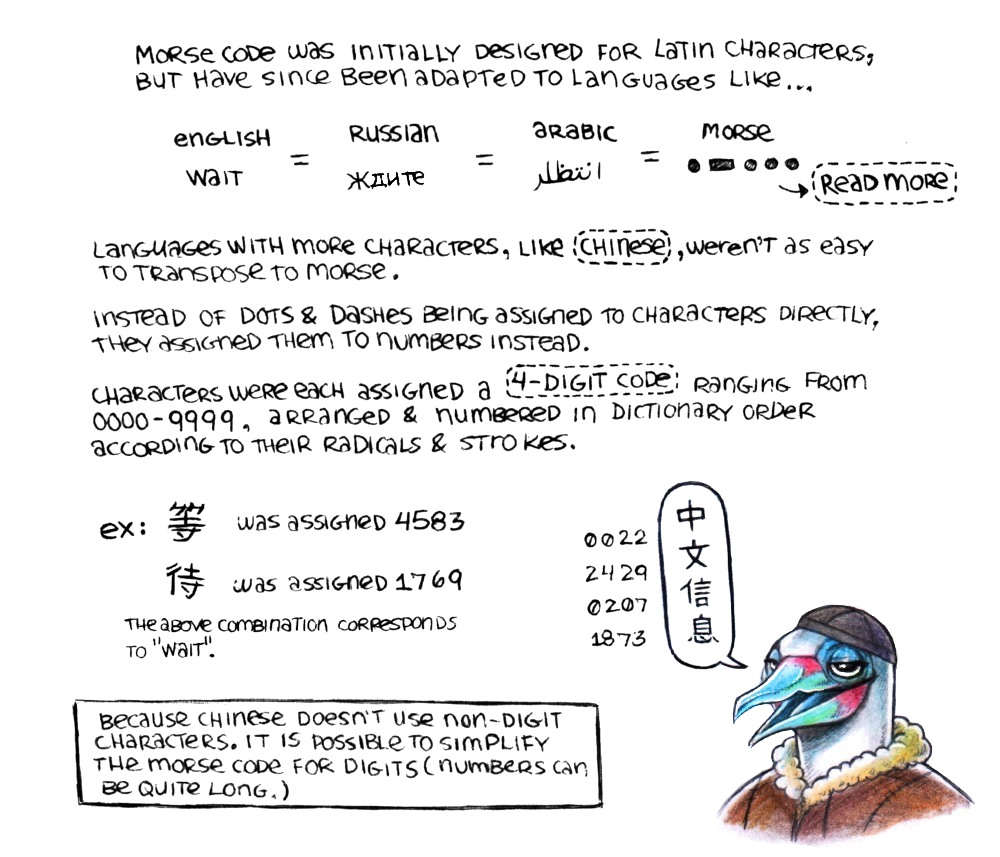 MORSE CODE WAS INITIALLY DESIGNED FOR LATIN CHARACTERS,
BUT HAVE SINCE BEEN ADAPTED TO LANGUAGES LIKE...
ENGLISH RUSSIAN ARABIC MORSE
= = =
WAIT ЖДИТЕ انتظار
READ MORE
LANGUAGES WITH MORE CHARACTERS, LIKE CHINESE, WEREN'T AS EASY
TO TRANSPOSE TO MORSE.
INSTEAD OF DOTS & DASHES BEING ASSIGNED TO CHARACTERS DIRECTLY,
THEY ASSIGNED THEM TO NUMBERS INSTEAD.
CHARACTERS WERE EACH ASSIGNED A 4-DIGIT CODE RANGING FROM
0000-9999, ARRANGED & NUMBERED IN DICTIONARY ORDER
ACCORDING TO THEIR RADICALS & STROKES.
EX: 等 WAS ASSIGNED 4583
待 WAS ASSIGNED 1769
THE ABOVE COMBINATION CORRESPONDS
TO "WAIT".
0022 中
2429 文
0207 信
1873 息
BECAUSE CHINESE DOESN'T USE NON-DIGIT
CHARACTERS. IT IS POSSIBLE TO SIMPLIFY
THE MORSE CODE FOR DIGITS (NUMBERS CAN
BE QUITE LONG.)